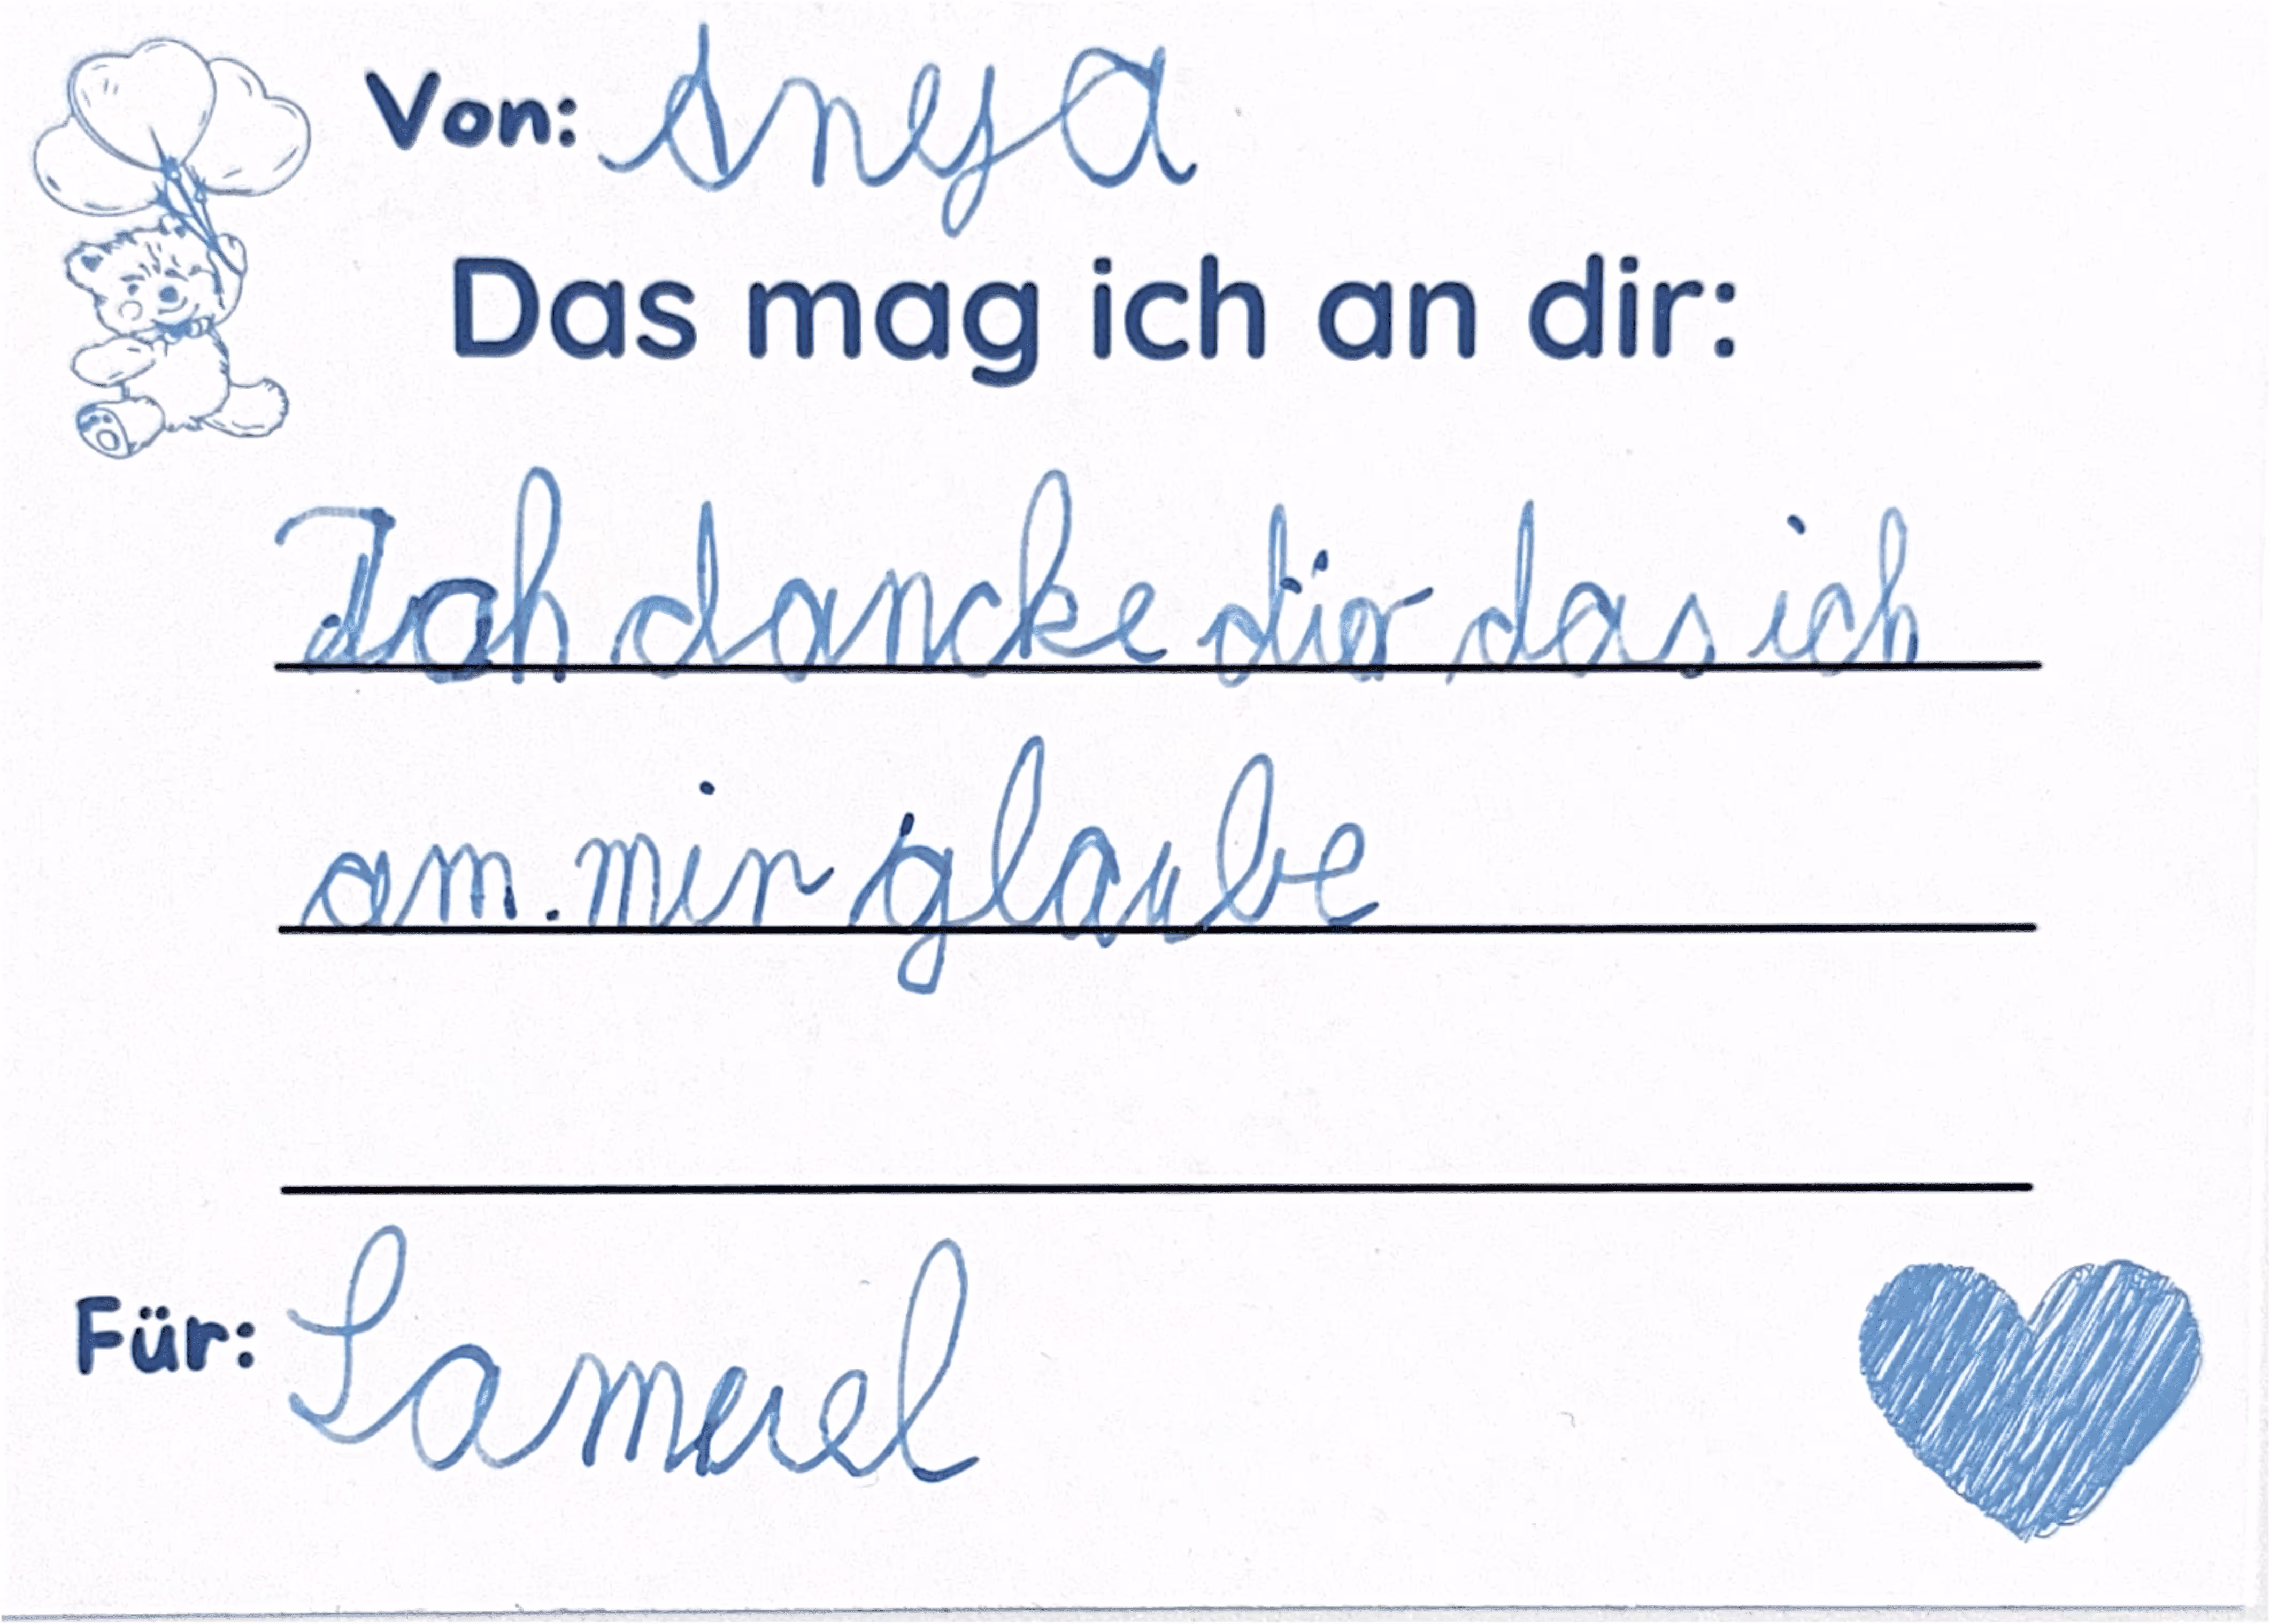 Von: Anya
Das mag ich an dir:
Ich dancke dir das ich
am. mir glaube
Für: Samuel